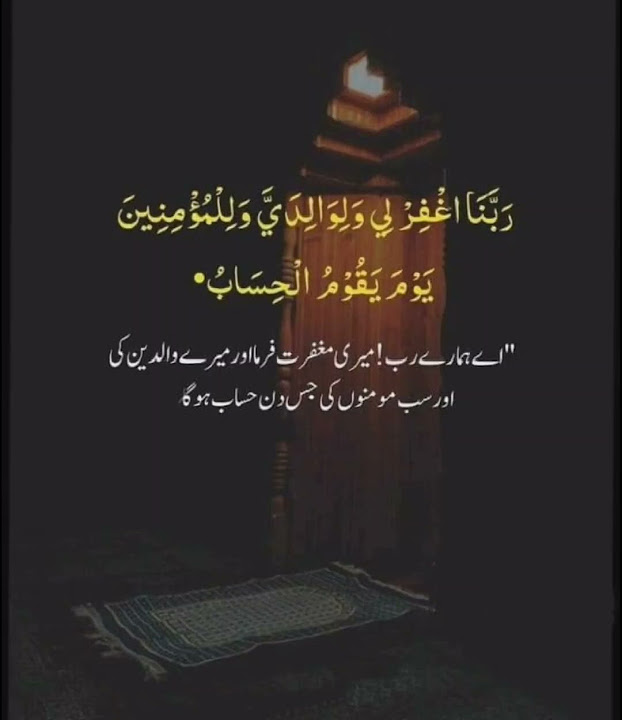 رَبَّنَا اغْفِرْ لِي وَلِوَالِدَيَّ وَلِلْمُؤْمِنِينَ
يَوْمَ يَقُوْمُ الْحِسَابُ•
"اے ہمارے رب! میری مغفرت فرما اور میرے والدین کی
اور سب مومنوں کی جس دن حساب ہو گا